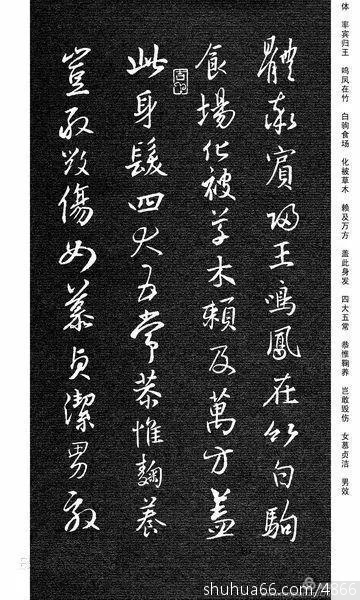 体 率宾归王 鸣凤在竹 白驹食场 化被草木 赖及万方 盖此身发 四大五常 恭惟鞠养 岂敢毁伤 女慕贞洁 男效
體率賓歸王鳴鳳在竹白駒
食場化被草木賴及萬方蓋
此身髮四大五常恭惟鞠養
豈敢毀傷女慕貞潔男效
shuhua66.com/4866